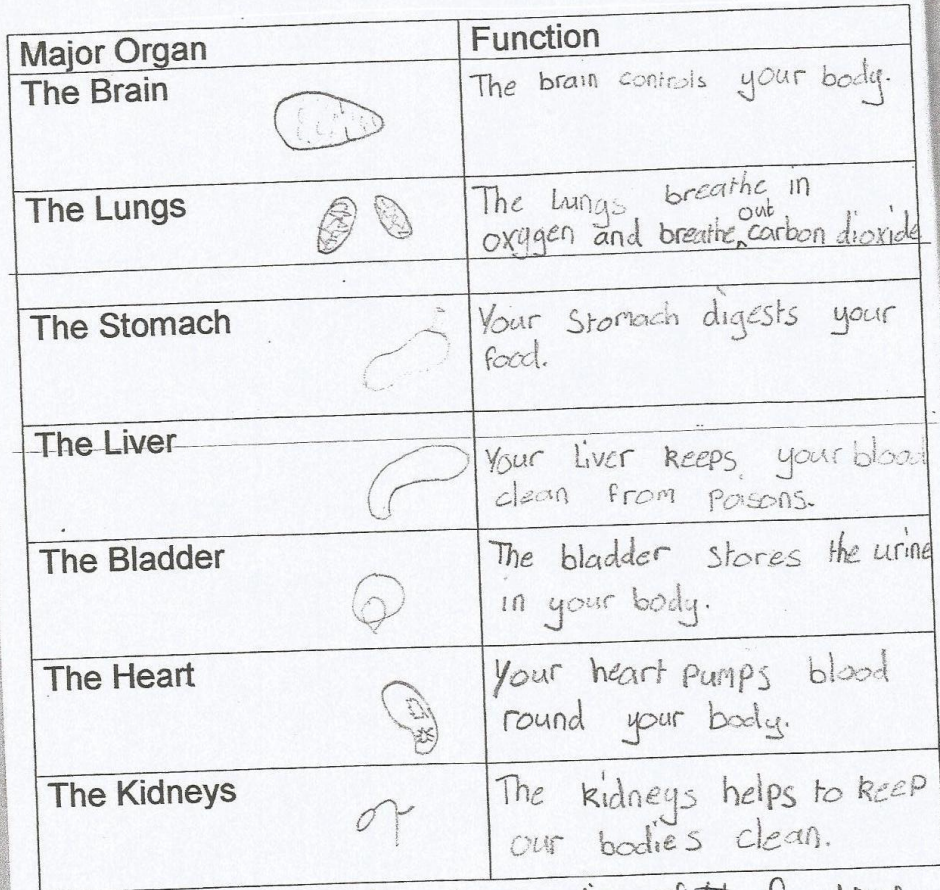 Major Organ
Function
The Brain
The brain controls your body.
The Lungs
The Lungs breathe in
out
oxygen and breathe‸carbon dioxide
The Stomach
Your Stomach digests your
food.
The Liver
Your Liver keeps your blood
clean from poisons.
The Bladder
The bladder stores the urine
in your body.
The Heart
Your heart pumps blood
round your body.
The Kidneys
The kidneys helps to keep
our bodies clean.